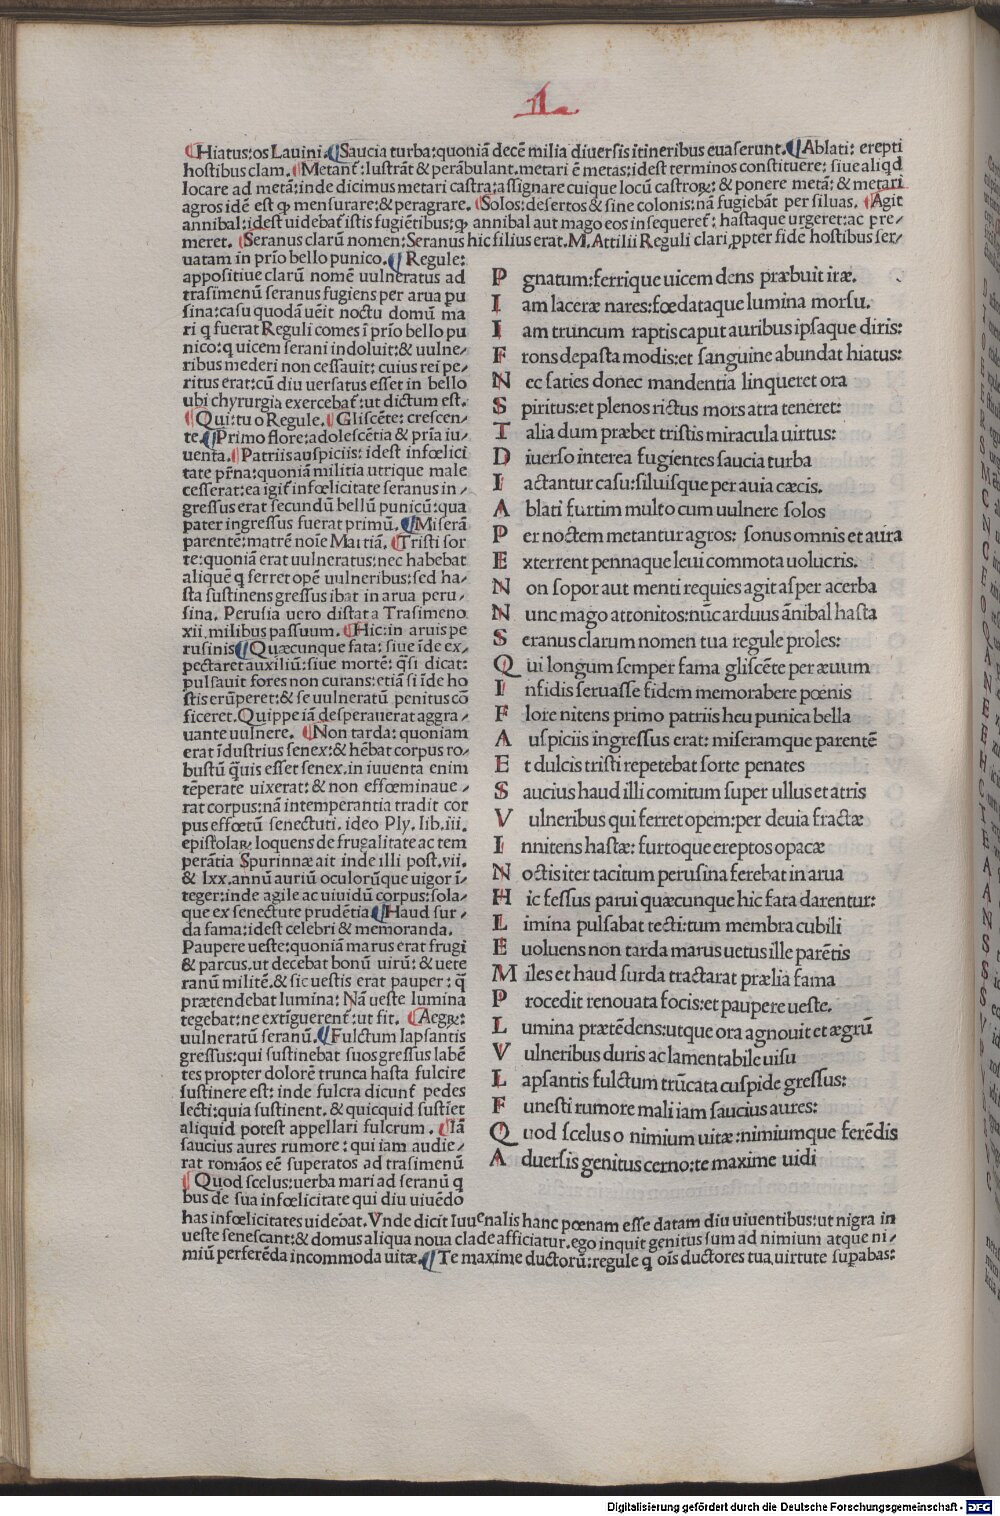 ¶Hiatus:os Lauini.¶Saucia turba:quoniã decẽ milia diuersis itineribus euaserunt.¶Ablati: erepti
hostibus clam.¶Metant̃:lustrãt & perãbulant.metari ẽ metas:idest terminos constituere: siue aliqd
locare ad metã:inde dicimus metari castra:assignare cuique locũ castroꝝ: & ponere metã: & metari
agros idẽ est ꝙ mensurare:& peragrare. ¶Solos:desertos & sine colonis:nã fugiebãt per siluas. ¶Agit
annibal:idest uidebat̃ istis fugiẽtibus:ꝙ annibal aut mago eos insequeret̃: hastaque urgeret:ac pre/
meret. ¶Seranus clarũ nomen:Seranus hic filius erat.M.Attilii Reguli clari ꝓpter fidẽ hostibus ser/
uatam in prĩo bello punico.¶Regule:
appositiue clarũ nomẽ uulneratus ad
trasimenũ seranus fugiens per arua pu
sina:casu quodã uẽit noctu domũ ma
ri q fuerat Reguli comes ĩ prĩo bello pu
nico:q uicem serani indoluit:& uulne/
ribus mederi non cessauit: cuius rei pe/
ritus erat:cũ diu uersatus esset in bello
ubi chyrurgia exercebat̃:ut dictum est.
¶Qui:tu o Regule.¶Gliscẽte: crescen/
te.¶Primo flore:adolescẽtia & prĩa iu/
uenta.¶Patriis auspiciis: idest infœlici
tate pr̃na:quoniã militia utrique male
cesserat:ea igit̃ infœlicitate seranus in/
gressus erat secundũ bellũ punicũ:qua
pater ingressus fuerat primũ.¶Miserã
parentẽ:matrẽ noĩe Martiã.¶Tristi sor
te:quoniã erat uulneratus:nec habebat
aliquẽ q ferret opẽ uulneribus:sed ha/
sta sustinens gressus ibat in arua peru/
sina. Perusia uero distat a Trasimeno
xii.milibus passuum.¶Hic:in aruis pe
rusinis¶Quæcunque fata: siue ĩde ex/
pectaret auxiliũ:siue mortẽ: q̃si dicat:
pulsauit fores non curans:etiã si ĩde ho
stis erũperet:& se uulneratũ penitus cõ
ficeret.Quippe iã desperauerat aggra/
uante uulnere. ¶Non tarda: quoniam
erat ĩdustrius senex:& hẽbat corpus ro/
bustũ q̃uis esset senex.in iuuenta enim
tẽperate uixerat: & non effœminaue/
rat corpus:nã intemperantia tradit cor
pus effœtũ senectuti. ideo Ply. lib.iii.
epistolaꝝ. loquens de frugalitate ac tem
perãtia Spurinnæ ait inde illi post.vii.
& lxx.annũ auriũ oculorũque uigor ĩ/
teger:inde agile ac uiuidũ corpus:sola/
que ex senectute prudẽtia¶Haud sur/
da fama:idest celebri & memoranda.
Paupere ueste:quoniã marus erat frugi
& parcus.ut decebat bonũ uirũ: & uete
ranũ militẽ.& sic uestis erat pauper: q̃
prætendebat lumina: Nã ueste lumina
tegebat:ne extĩguerent̃:ut fit. ¶Aegꝝ:
uulneratũ seranũ.¶Fulctum lapsantis
gressus:qui sustinebat suos gressus labẽ
tes propter dolorẽ trunca hasta fulcire
sustinere est: inde fulcra dicunt̃ pedes
lecti:quia sustinent. & quicquid sustĩet
aliquid potest appellari fulcrum. ¶Iã
saucius aures rumore: qui iam audie/
rat romãos eẽ superatos ad trasimenũ
¶Quod scelus:uerba mari ad seranũ q
bus de sua infœlicitate qui diu uiuẽdo
has infœlicitates uidebat. Vnde dicit Iuuenalis hanc pœnam esse datam diu uiuentibus:ut nigra in
ueste senescant:& domus aliqua noua clade afficiatur.ego inquit genitus sum ad nimium atque ni/
miũ perferẽda incommoda uitæ.¶Te maxime ductorũ:regule q oĩs ductores tua uirtute suꝑabas:
P gnatum:ferrique uicem dens præbuit iræ.
I am laceræ nares:fœdataque lumina morsu.
I am truncum raptis caput auribus ipsaque diris:
F rons depasta modis:et sanguine abundat hiatus:
N ec saties donec mandentia linqueret ora
S piritus:et plenos rictus mors atra teneret:
T alia dum præbet tristis miracula uirtus:
D iuerso interea fugientes saucia turba
I actantur casu:siluisque per auia cæcis.
A blati furtim multo cum uulnere solos
P er noctem metantur agros: sonus omnis et aura
E xterrent pennaque leui commota uolucris.
N on sopor aut menti requies agit asper acerba
N unc mago attonitos:nũc arduus ãnibal hasta
S eranus clarum nomen tua regule proles:
Q ui longum semper fama gliscẽte per æuum
I nfidis seruasse fidem memorabere pœnis
F lore nitens primo patriis heu punica bella
A uspiciis ingressus erat: miseramque parentẽ
E t dulcis tristi repetebat sorte penates
S aucius haud illi comitum super ullus et atris
V ulneribus qui ferret opem:per deuia fractæ
I nnitens hastæ: furtoque ereptos opacæ
N octis iter tacitum perusina ferebat in arua
H ic fessus parui quæcunque hic fata darentur:
L imina pulsabat tecti:tum membra cubili
E uoluens non tarda marus uetus ille parẽtis
M iles et haud surda tractarat prælia fama
P rocedit renouata focis:et paupere ueste.
L umina prætẽdens:utque ora agnouit et ægrũ
V ulneribus duris ac lamentabile uisu
L apsantis fulctum trũcata cuspide gressus:
F unesti rumore mali iam saucius aures:
Q uod scelus o nimium uitæ:nimiumque ferẽdis
A duersis genitus cerno:te maxime uidi
Digitalisierung gefördert durch die Deutsche Forschungsgemeinschaft - DFG